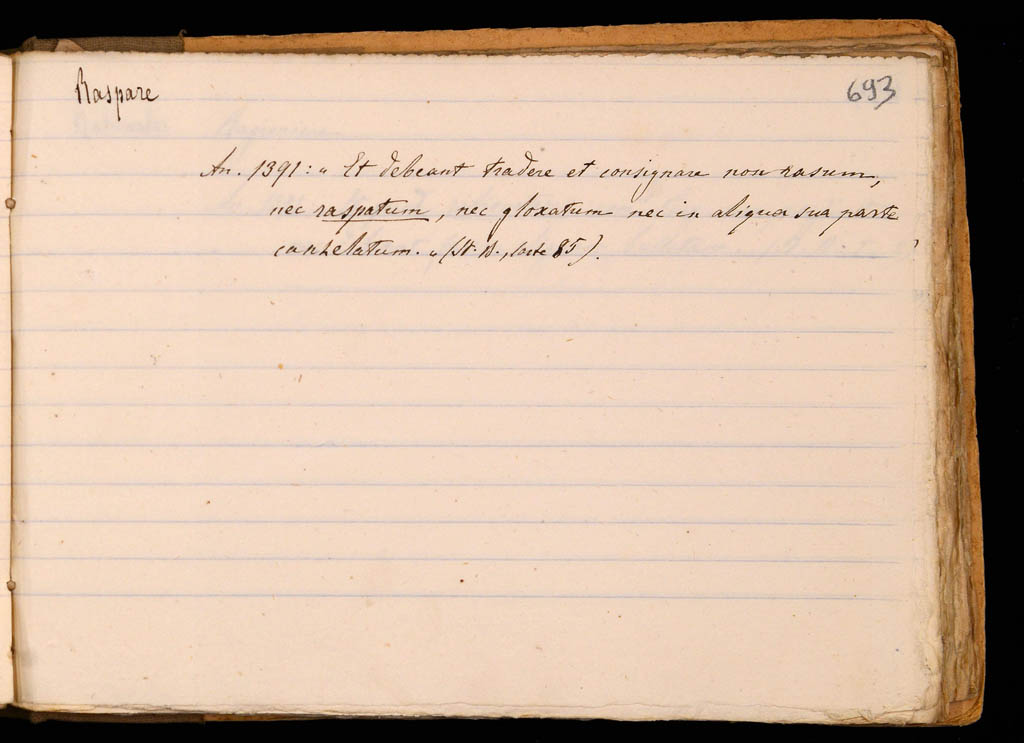 Raspare
693
An. 1391: " Et debeant tradere et consignare non rasum,
nec raspatum, nec gloxatum nec in aliqua sua parte
canzelatum. " (St. B., carte 85).